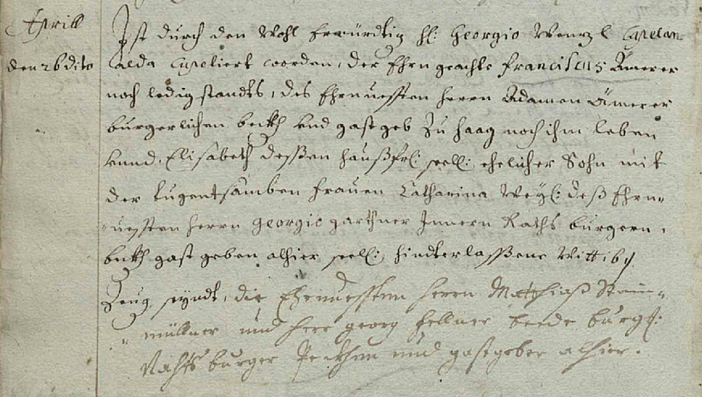 Aprill
den 26 dito
Ist durch den Wohl Erwürdig hl: Georgio Wenzl Capelan
alda Copeliert worden, der Ehrngeachte Franciscus Amerer
noch ledig standts, des Ehrnuessten herrn Adamen Ämerer
burgerlichen beckh und gastgeb zu haag noch ihm leben
und Elisabeth deßen haußfr: seell: ehelicher Sohn mit
der tugentsamben Frauen Catharina Weyl: deß Ehrn-
uessten herrn Georgio garthner Innern Raths burgern,
beckh gastgeben alhier seell: hindterlassßene Wittib
Zeug seyndt, die Ehrnuessten herrn Matthiaß Stain-
müllner und herr georg fellner beede burgl:
Rahts burger Peckhen und gastgeber alhier.